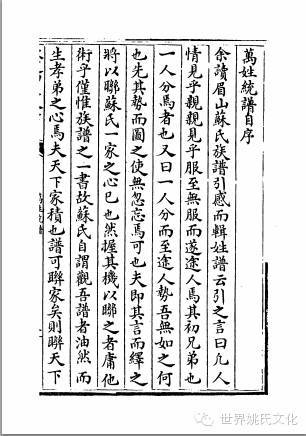 萬姓統譜自序
余讀眉山蘇氏族譜引感而輯姓譜云引之言曰凡人
情見乎親親見乎服至無服而遂途人焉其初兄弟也
一人分焉者也又曰一人分而至途人勢吾無如之何
也先其勢而圖之使無忽忘焉可也夫即其言而繹之
將以聯蘇氏一家之心已也然握其機以聯之者庸他
術乎僅惟族譜之一書故蘇氏自謂觀吾譜者油然而
生孝弟之心焉夫天下家積也譜可聯家矣則聯天下
世界姚氏文化